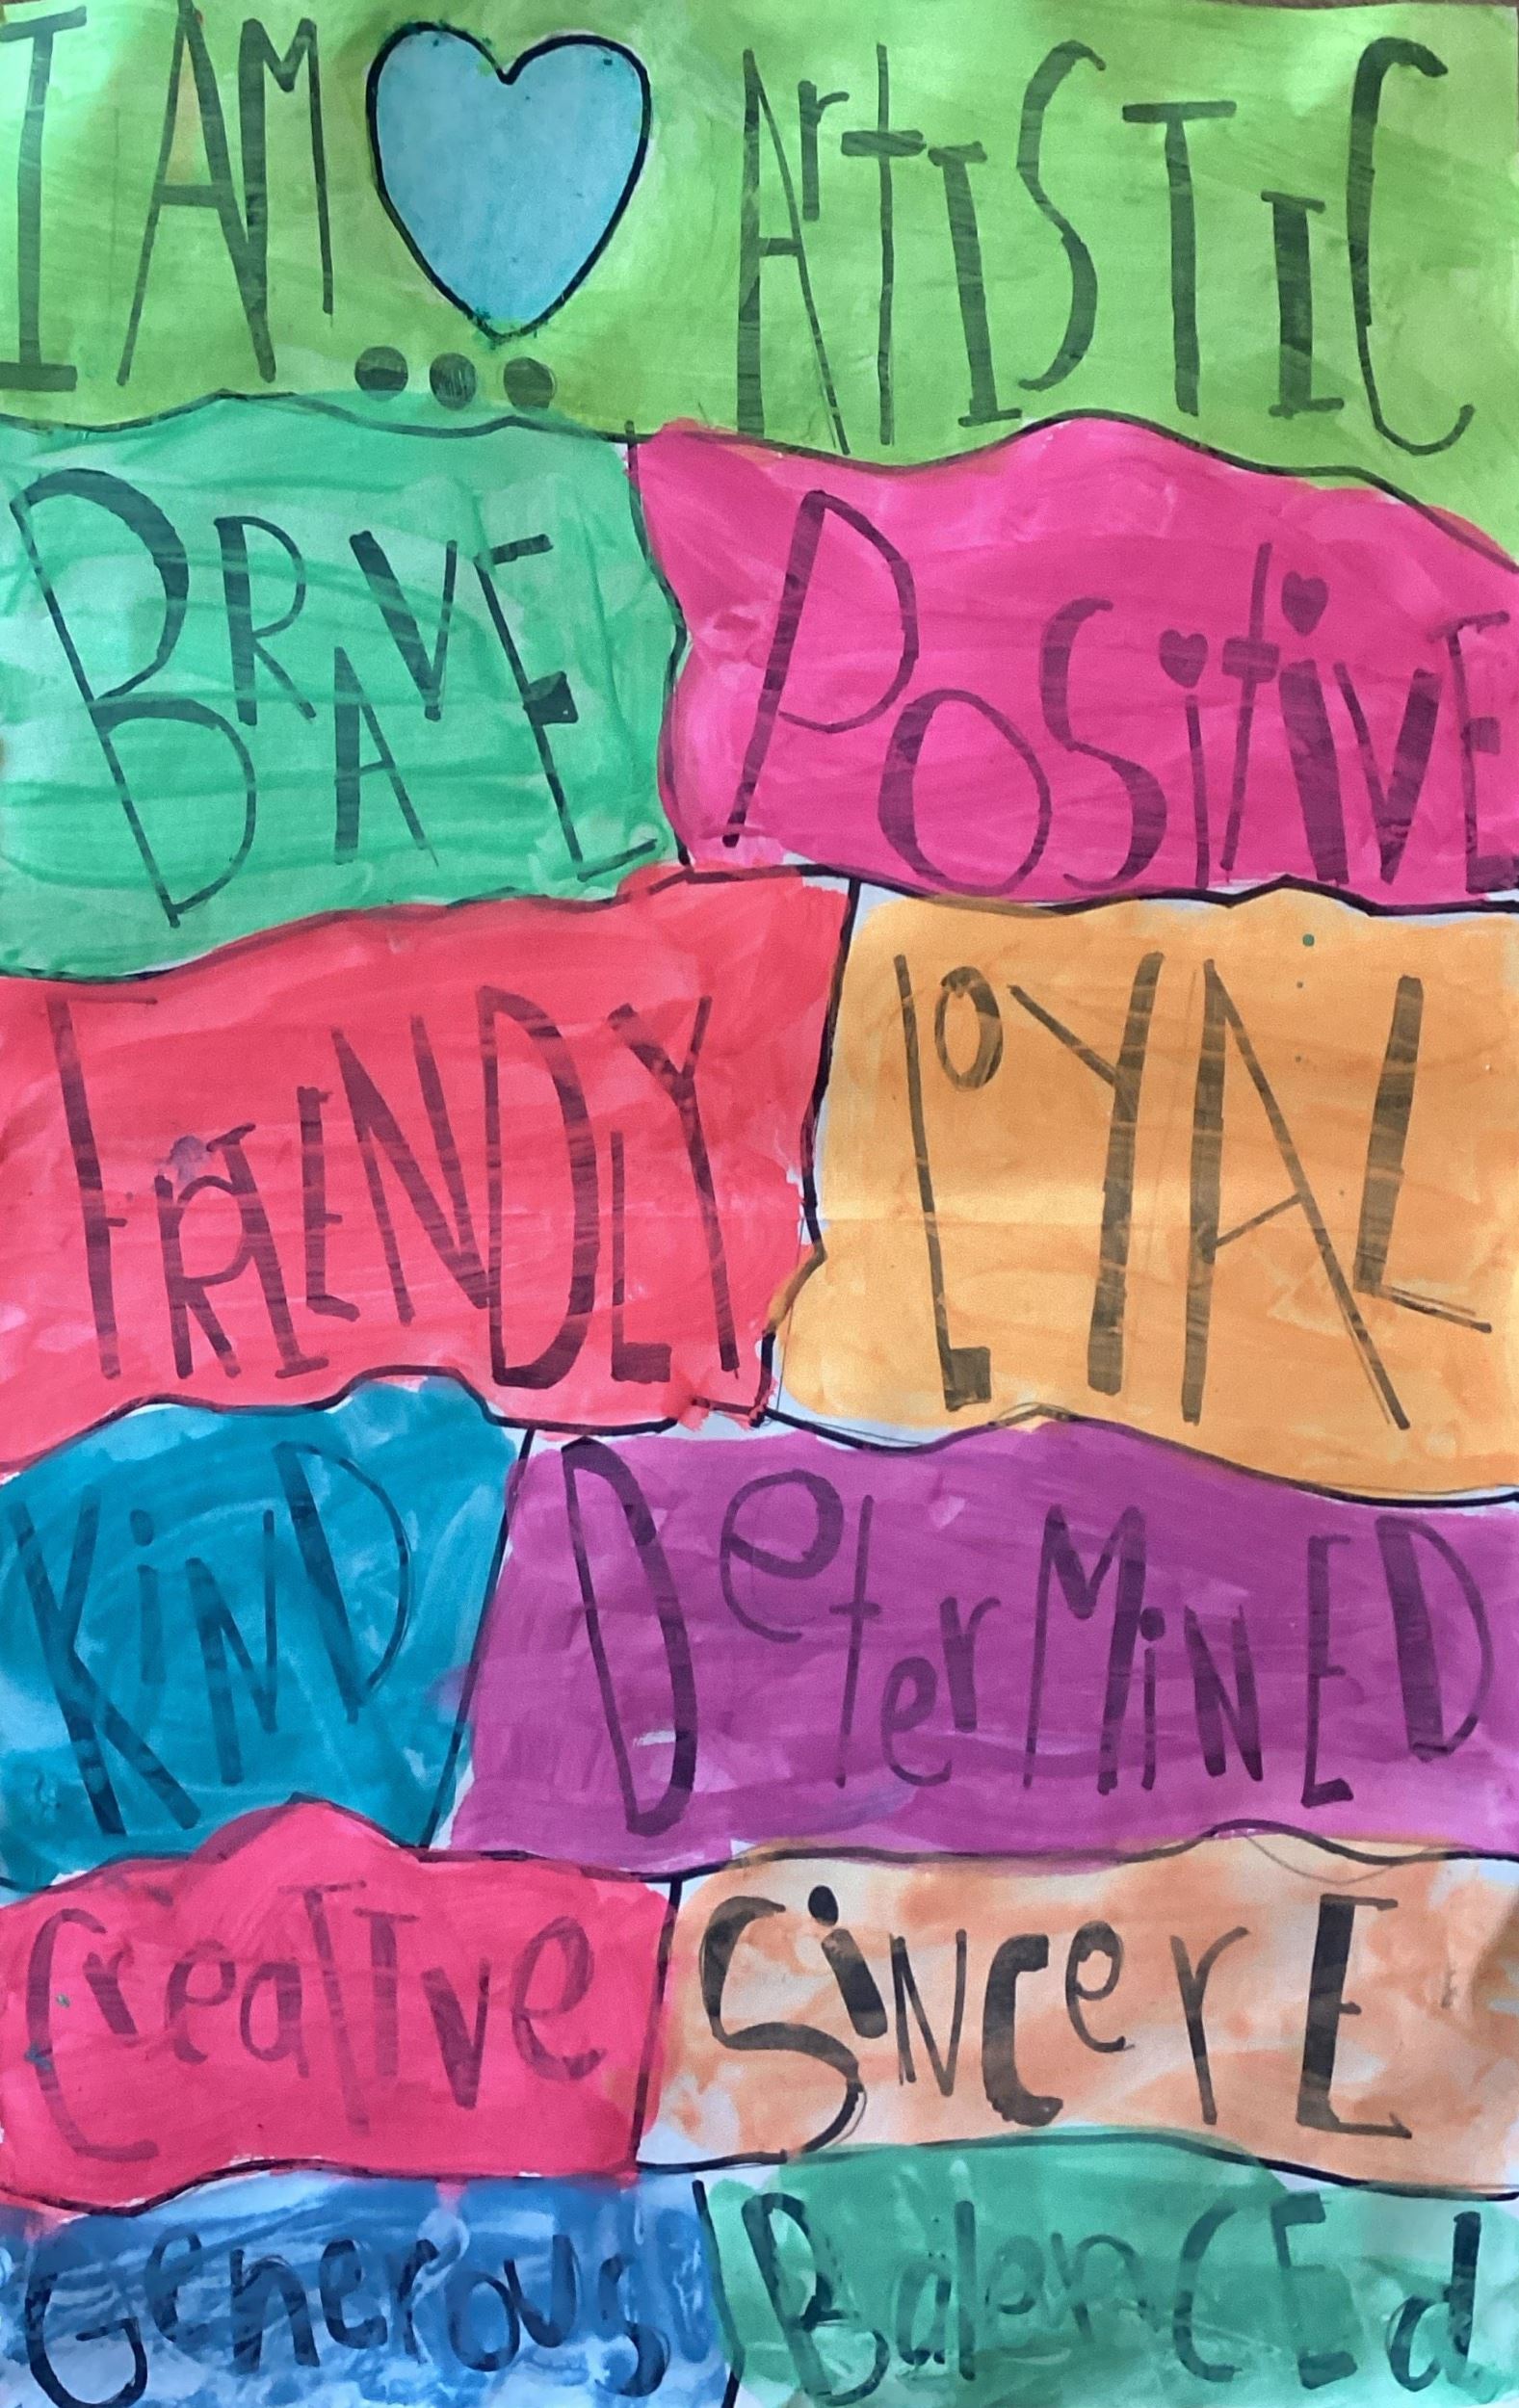 I AM... ArtISTIC
BRAVE POSitiVE
FRIENDLY LOYAL
KiND DeterMiNED
CreaTIve SiNcerE
Generous BalenCEd